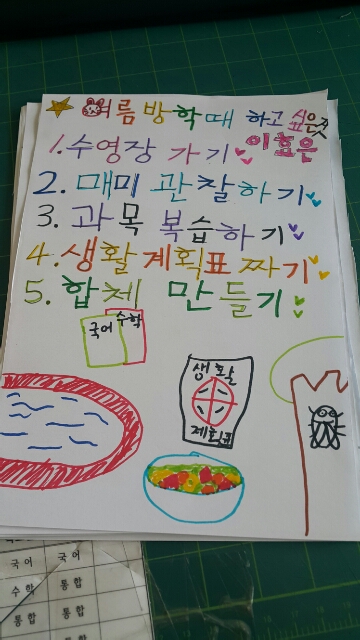 여름방학때 하고 싶은것
이효은
1. 수영장 가기
2. 매미 관찰하기
3. 과목 복습하기
4. 생활계획표 짜기
5. 합체 만들기
국어 수학
생활
계획표
국어 국어
수학 통합
통합 통합